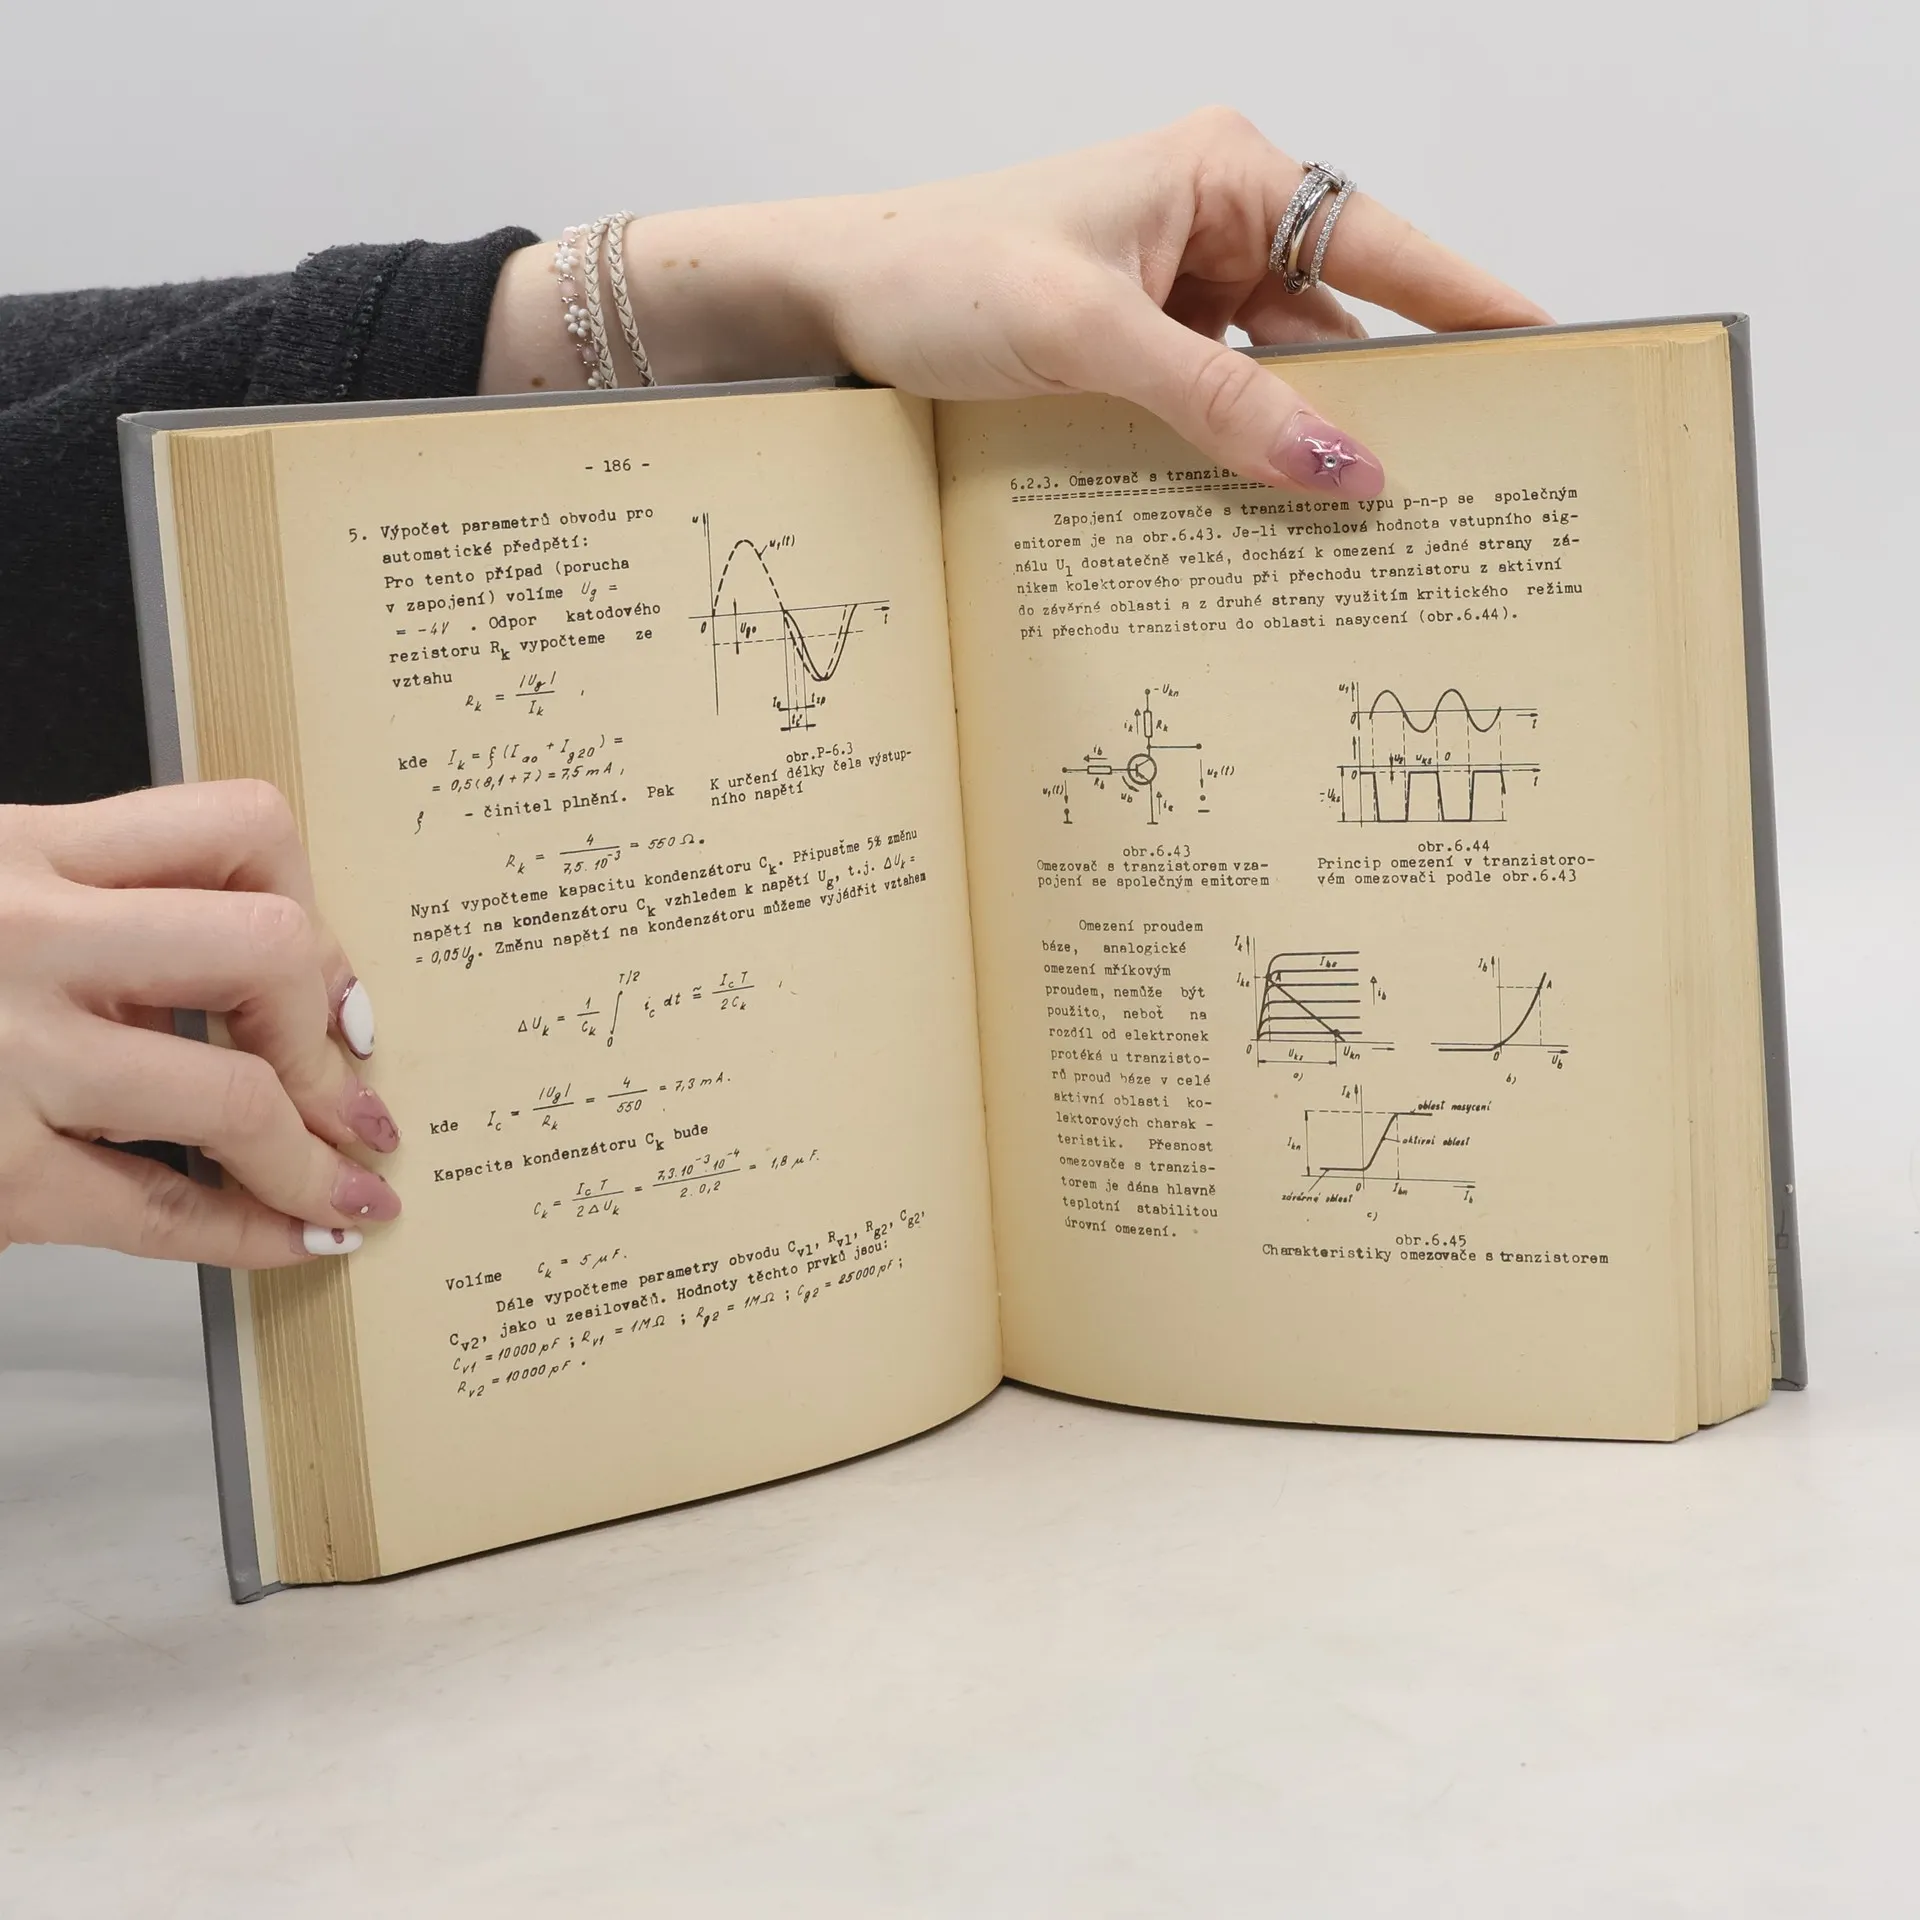 - 186 -
5. Výpočet parametrů obvodu pro
automatické předpětí:
Pro tento případ (porucha
v zapojení) volíme Ug =
= -4V . Odpor katodového
rezistoru Rk vypočteme ze
vztahu
Rk = |Ug| / Ik ,
kde Ik = ξ (Iao + Ig20) =
= 0,5 (8,1 + 7) = 7,5 mA ,
ξ - činitel plnění. Pak
u
u1(t)
0
Ugo
t
obr.P-6.3
K určení délky čela výstup-
ního napětí
Rk = 4 / 7,5 . 10^-3 = 550 Ω.
Nyní vypočteme kapacitu kondenzátoru Ck. Připusťme 5% změnu
napětí na kondenzátoru Ck vzhledem k napětí Ug, t.j. ΔUk =
= 0,05 Ug. Změnu napětí na kondenzátoru můžeme vyjádřit vztahem
ΔUk = 1/Ck ∫0^T/2 ic dt ≅ Ic T / 2Ck ,
kde Ic = |Ug| / Rk = 4 / 550 = 7,3 mA.
Kapacita kondenzátoru Ck bude
Ck = Ic T / 2ΔUk = 7,3.10^-3.10^-4 / 2.0,2 = 1,8 μF.
Volíme Ck = 5 μF.
Dále vypočteme parametry obvodu Cv1, Rv1, Rg2, Cg2,
Cv2, jako u zesilovačů. Hodnoty těchto prvků jsou:
Cv1 = 10000 pF ; Rv1 = 1MΩ ; Rg2 = 1MΩ ; Cg2 = 25000 pF ;
Rv2 = 10000 pF .
6.2.3. Omezovač s
Zapojení omezovače s tranzistorem typu p-n-p se společným
emitorem je na obr.6.43. Je-li vrcholová hodnota vstupního sig-
nálu U1 dostatečně velká, dochází k omezení z jedné strany zá-
nikem kolektorového proudu při přechodu tranzistoru z aktivní
do závěrné oblasti a z druhé strany využitím kritického režimu
při přechodu tranzistoru do oblasti nasycení (obr.6.44).
- Ukn
ik
Rk
ib
Rb
ub
u1(t)
u2(t)
obr.6.43
Omezovač s tranzistorem vza-
pojení se společným emitorem
u1
0
t
u2
uks
0
0
t
obr.6.44
Princip omezení v tranzistoro-
vém omezovači podle obr.6.43
Omezení proudem
báze, analogické
omezení mřížkovým
proudem, nemůže být
použito, neboť na
rozdíl od elektronek
protéká u tranzisto-
rů proud báze v celé
aktivní oblasti ko-
lektorových charak -
teristik. Přesnost
omezovače s tranzis-
torem je dána hlavně
teplotní stabilitou
úrovní omezení.
Ik
Iks
A
ib
0
Uks
Ukn
a)
Ib
A
0
Ub
b)
Ik
oblast nasycení
aktivní oblast
Ikn
závěrná oblast
0
Ibn
Ib
c)
obr.6.45
Charakteristiky omezovače s tranzistorem